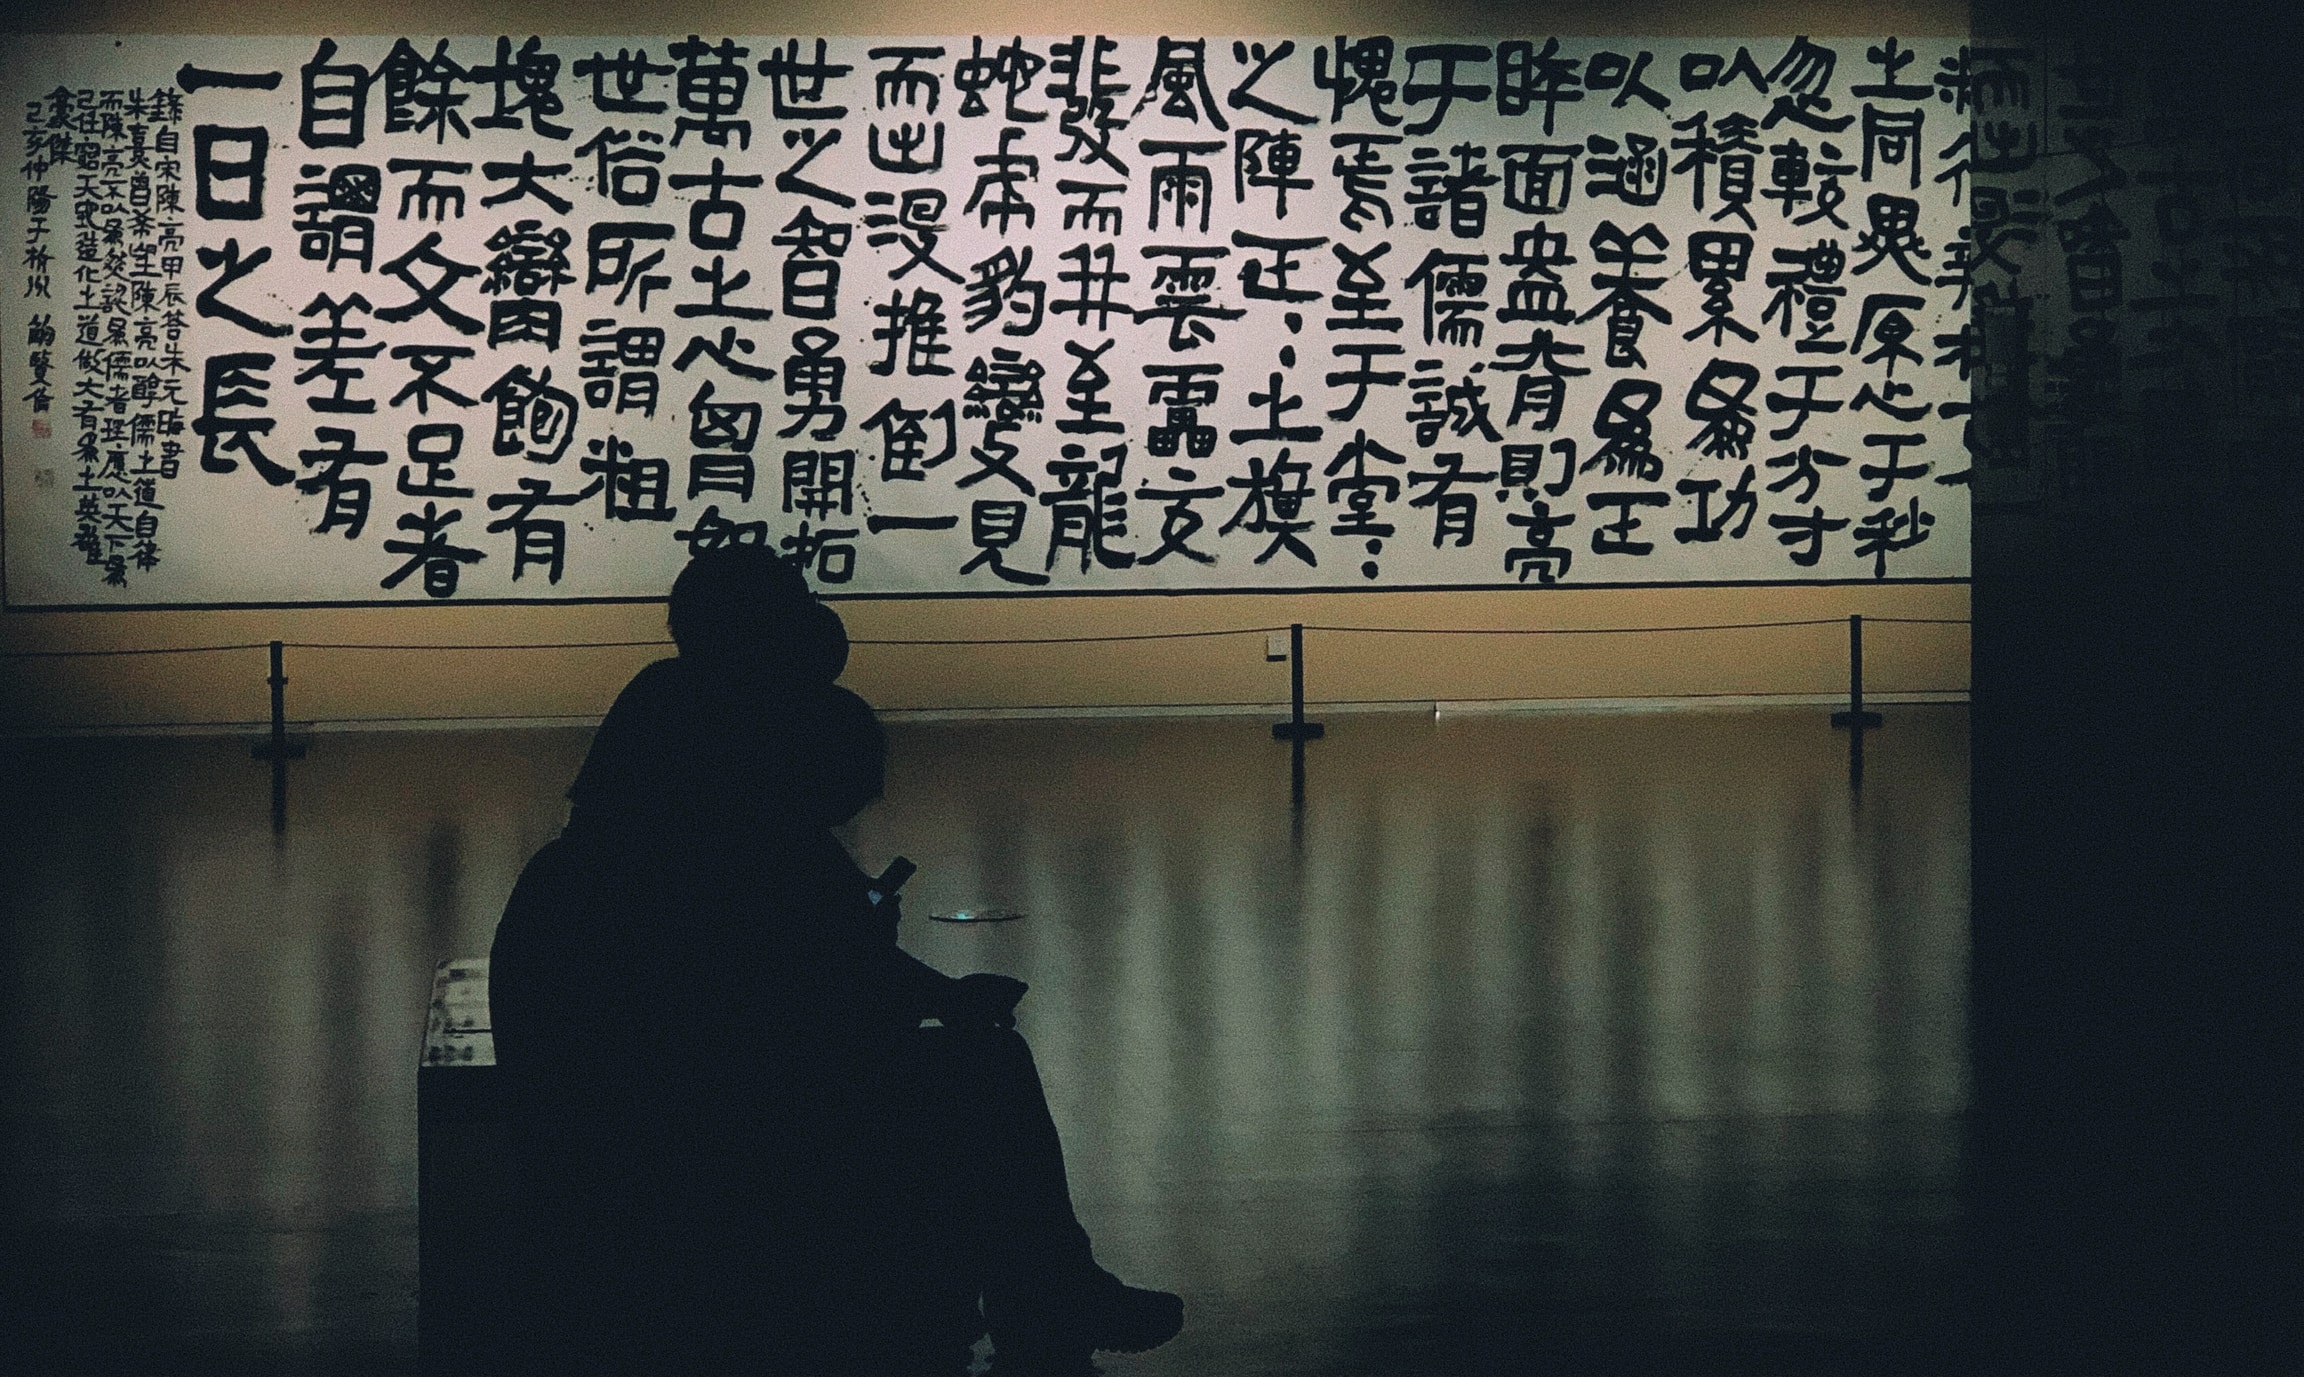 之同異原心于秒
忽較禮于分寸
以積累為功
以涵養為正
眸面盎背則亮
于諸儒誠有
愧焉至于堂：
之陣正：之旗
風雨雲雷交
發而并至龍
蛇虎豹變見
而出沒推倒一
世之智勇開拓
萬古之心胸如
世俗所謂粗
塊大臠飽有
餘而文不足者
自謂差有
一日之長
錄自宋陳亮甲辰答朱元晦書
朱熹曾希望陳亮以醇儒之道自律
而陳亮不以為然認為儒者理應以天下為
己任 天地造化之道做大有為之英雄
豪傑
己亥仲陽于杭州